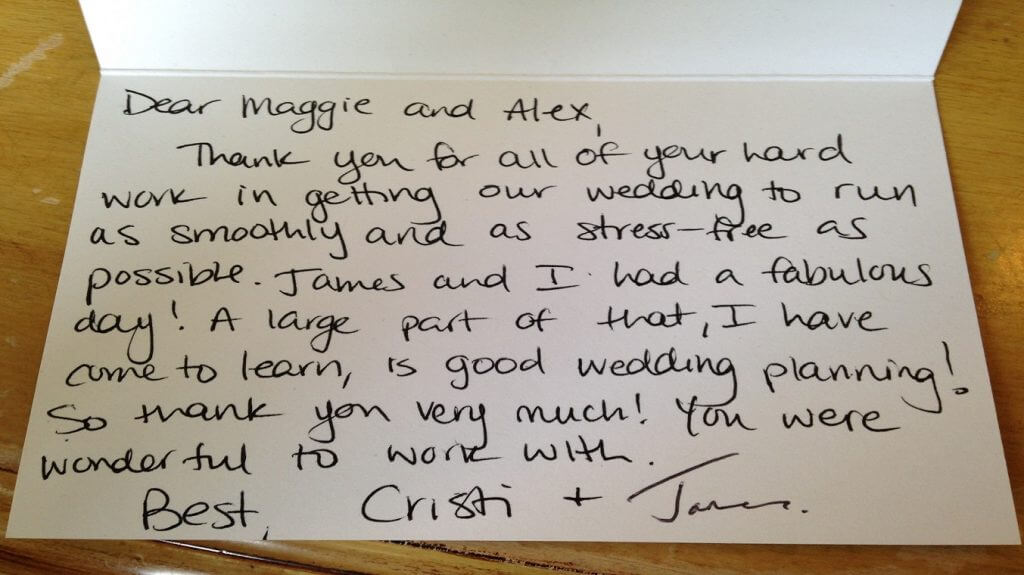 Dear Maggie and Alex,
Thank you for all of your hard
work in getting our wedding to run
as smoothly and as stress-free as
possible. James and I had a fabulous
day! A large part of that, I have
come to learn, is good wedding planning!
So thank you very much! You were
wonderful to work with.
Best, Cristi + James.